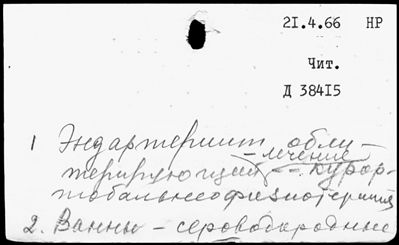 21.4.66 НР
Чит.
Д 38415
1 Эндартериит обли-
терирующий - лечение - курор-
тобальнеофизиотерапия
2. Ванны - сероводородные